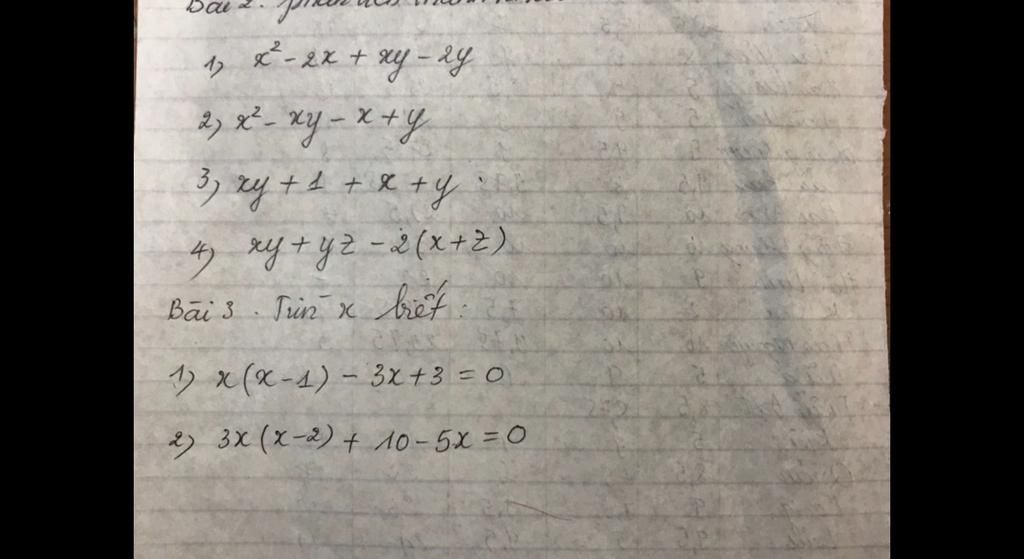 Bài 2.
1, x² - 2x + xy - 2y
2, x² - xy - x + y
3, xy + 1 + x + y
4, xy + yz - 2(x+z)
Bài 3. Tìm x biết:
1) x(x-1) - 3x+3 = 0
2) 3x(x-2) + 10-5x = 0